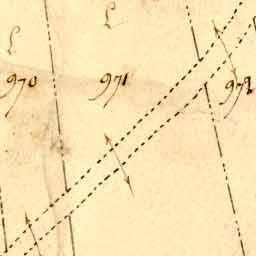 L
L
970 971 972